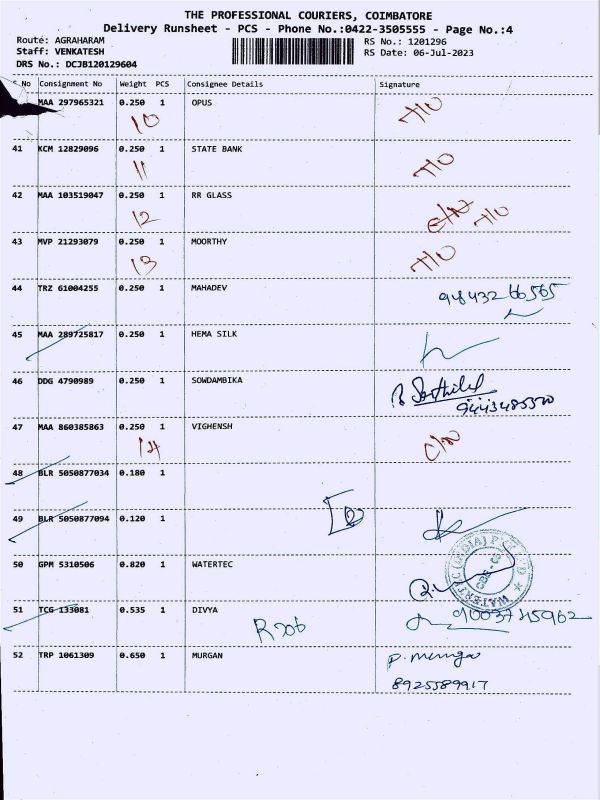 THE PROFESSIONAL COURIERS, COIMBATORE
Delivery Runsheet - PCS - Phone No.:0422-3505555 - Page No.:4
Route: AGRAHARAM RS No.: 1201296
Staff: VENKATESH RS Date: 06-Jul-2023
DRS No.: DCJB120129604
No Consignment No Weight PCS Consignee Details Signature
MAA 297965321 0.250 1 OPUS
10
41 KCM 12829096 0.250 1 STATE BANK
11
42 MAA 103519047 0.250 1 RR GLASS
12
43 MVP 21293079 0.250 1 MOORTHY
13
44 TRZ 61004255 0.250 1 MAHADEV
9843266565
45 MAA 289725817 0.250 1 HEMA SILK
46 DDG 4790989 0.250 1 SOWDAMBIKA
9443485320
47 MAA 860385863 0.250 1 VIGHENSH
14
48 BLR 5050877034 0.180 1
49 BLR 5050877094 0.120 1
50 GPM 5310506 0.820 1 WATERTEC
WATERTEC (INDIA) P LTD
51 TCG 133081 0.535 1 DIVYA
9003745962
52 TRP 1061309 0.650 1 MURGAN
P. Murga
8925589917